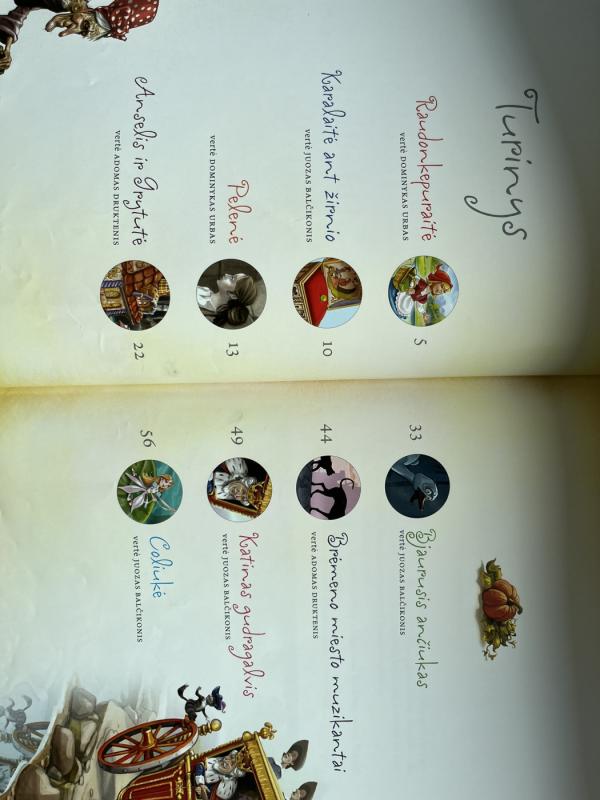 Turinys
Raudonkepuraitė
vertė DOMINYKAS URBAS
5
Karalaitė ant žirnio
vertė JUOZAS BALČIKONIS
10
Pelenė
vertė DOMINYKAS URBAS
13
Anselis ir Grytutė
vertė ADOMAS DRUKTENIS
22
33
Bjaurusis ančiukas
vertė JUOZAS BALČIKONIS
44
Brėmeno miesto muzikantai
vertė ADOMAS DRUKTENIS
49
Katinas gudragalvis
vertė JUOZAS BALČIKONIS
56
Coliukė
vertė JUOZAS BALČIKONIS